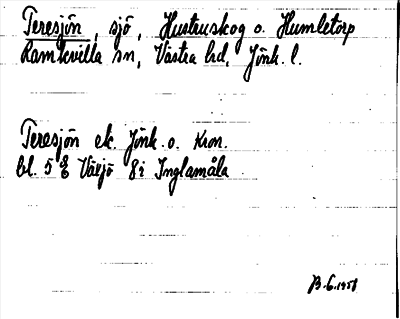 Teresjön, sjö, Hustruskog o. Humletorp
Ramkvilla sn, Västra hd, Jönk. l.
Teresjön ek. Jönk. o. Kron.
bl. 5 E Växjö 8i Inglamåla